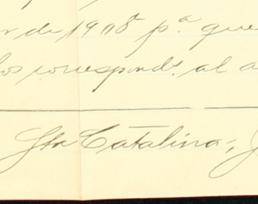 de 1908 pª que
los correspondˢ. al a
Sta Catalina,